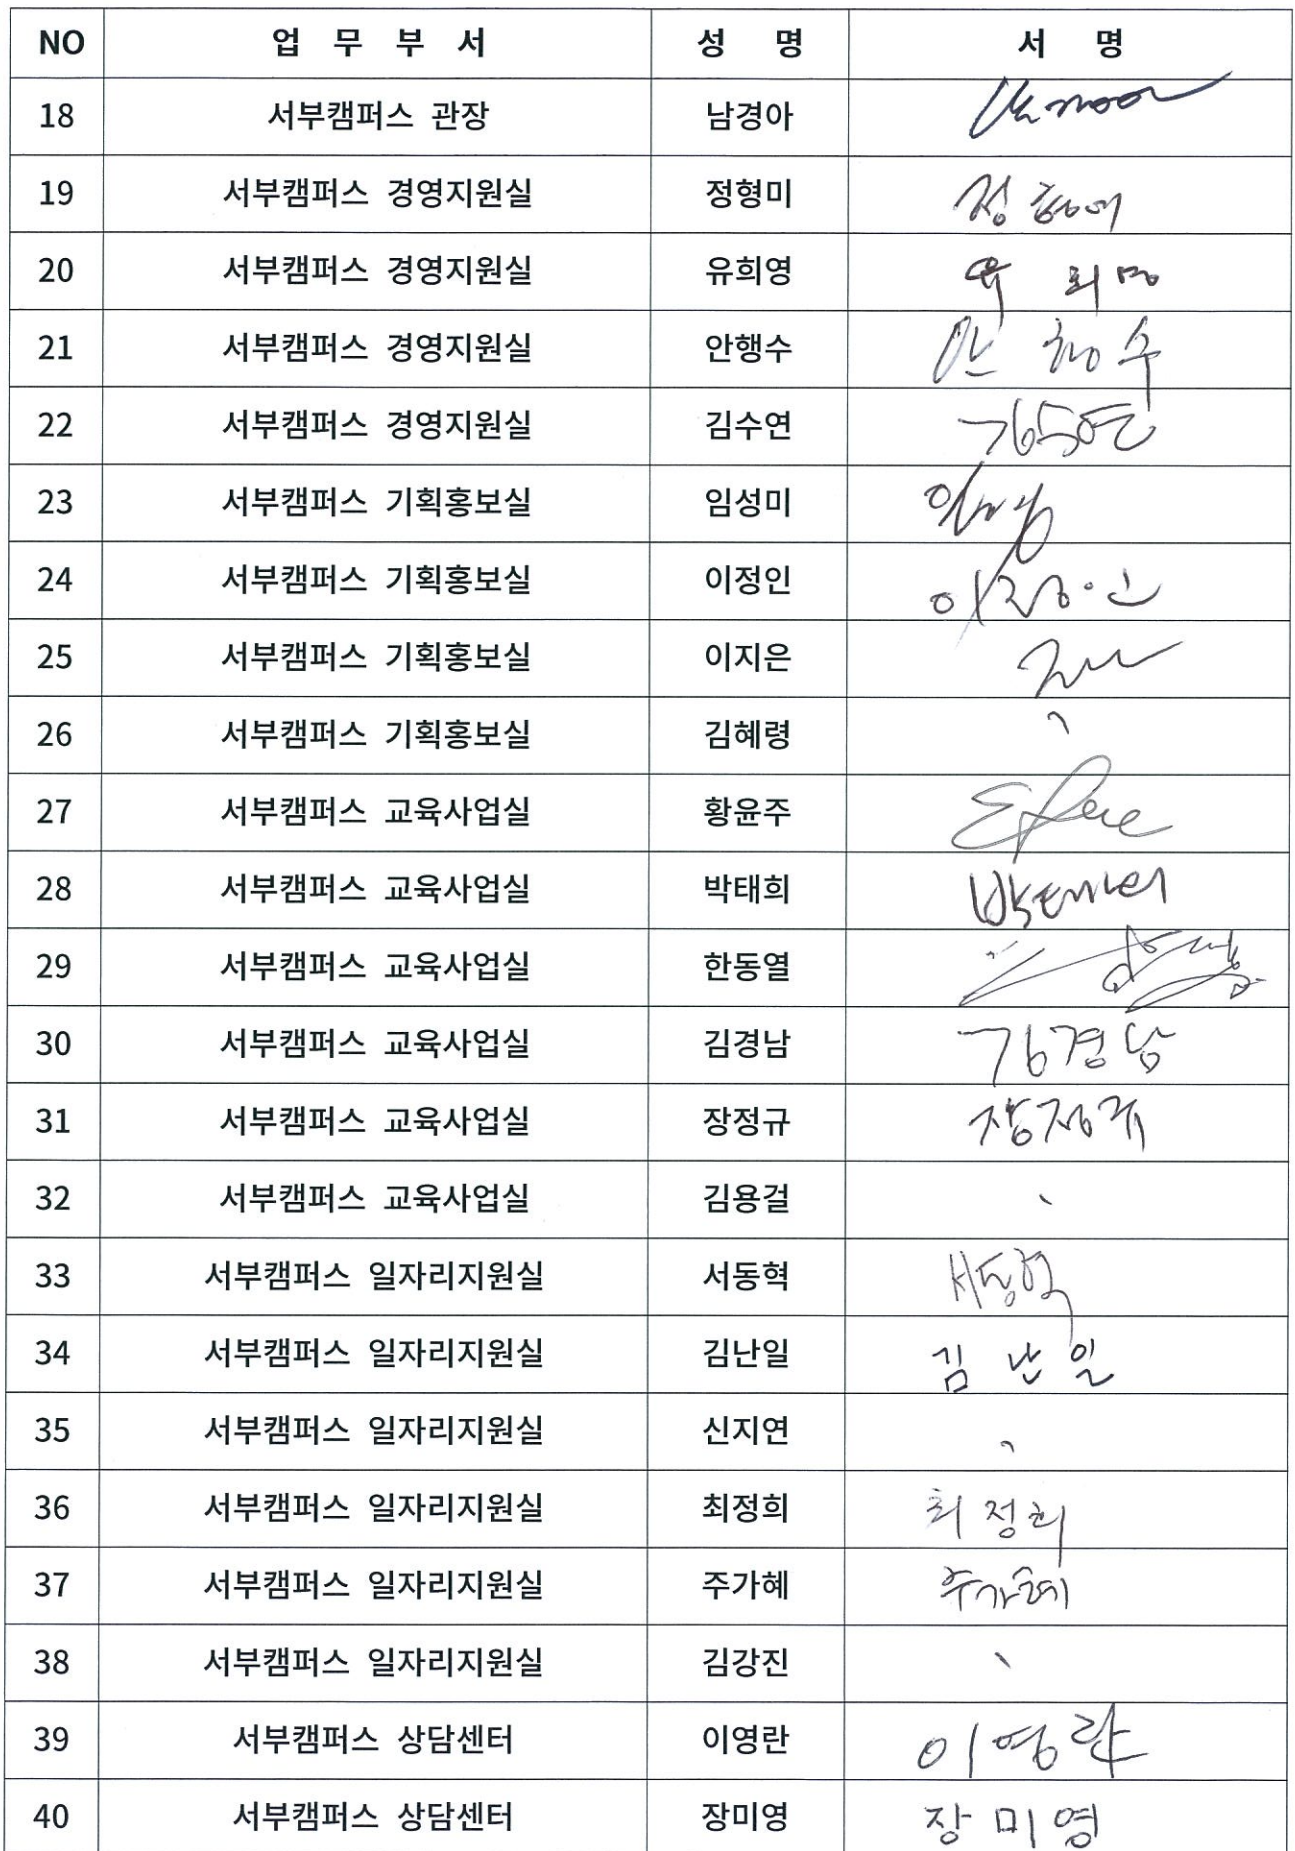 NO 업 무 부 서 성 명 서 명
18 서부캠퍼스 관장 남경아
19 서부캠퍼스 경영지원실 정형미 정형미
20 서부캠퍼스 경영지원실 유희영 유희영
21 서부캠퍼스 경영지원실 안행수 안행수
22 서부캠퍼스 경영지원실 김수연 김수연
23 서부캠퍼스 기획홍보실 임성미
24 서부캠퍼스 기획홍보실 이정인 이정인
25 서부캠퍼스 기획홍보실 이지은
26 서부캠퍼스 기획홍보실 김혜령
27 서부캠퍼스 교육사업실 황윤주
28 서부캠퍼스 교육사업실 박태희 박태희
29 서부캠퍼스 교육사업실 한동열
30 서부캠퍼스 교육사업실 김경남 김경남
31 서부캠퍼스 교육사업실 장정규 장정규
32 서부캠퍼스 교육사업실 김용걸
33 서부캠퍼스 일자리지원실 서동혁 서동혁
34 서부캠퍼스 일자리지원실 김난일 김난일
35 서부캠퍼스 일자리지원실 신지연
36 서부캠퍼스 일자리지원실 최정희 최정희
37 서부캠퍼스 일자리지원실 주가혜 주가혜
38 서부캠퍼스 일자리지원실 김강진
39 서부캠퍼스 상담센터 이영란 이영란
40 서부캠퍼스 상담센터 장미영 장미영